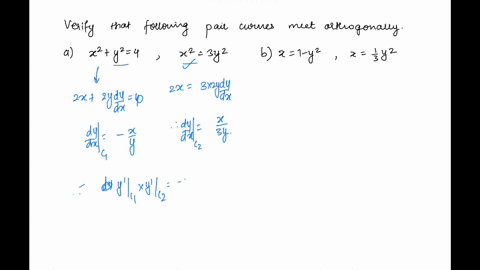 Verify that following pair curves meet orthogonally.
a) x²+y²=4 , x²=3y² b) x=1-y² , x=⅓y²
2x+2y dy/dx=0 2x=3×2y dy/dx
dy/dx|c₁=-x/y ∴ dy/dx|c₂=x/3y.
∴ y'|c₁×y'|c₂=-